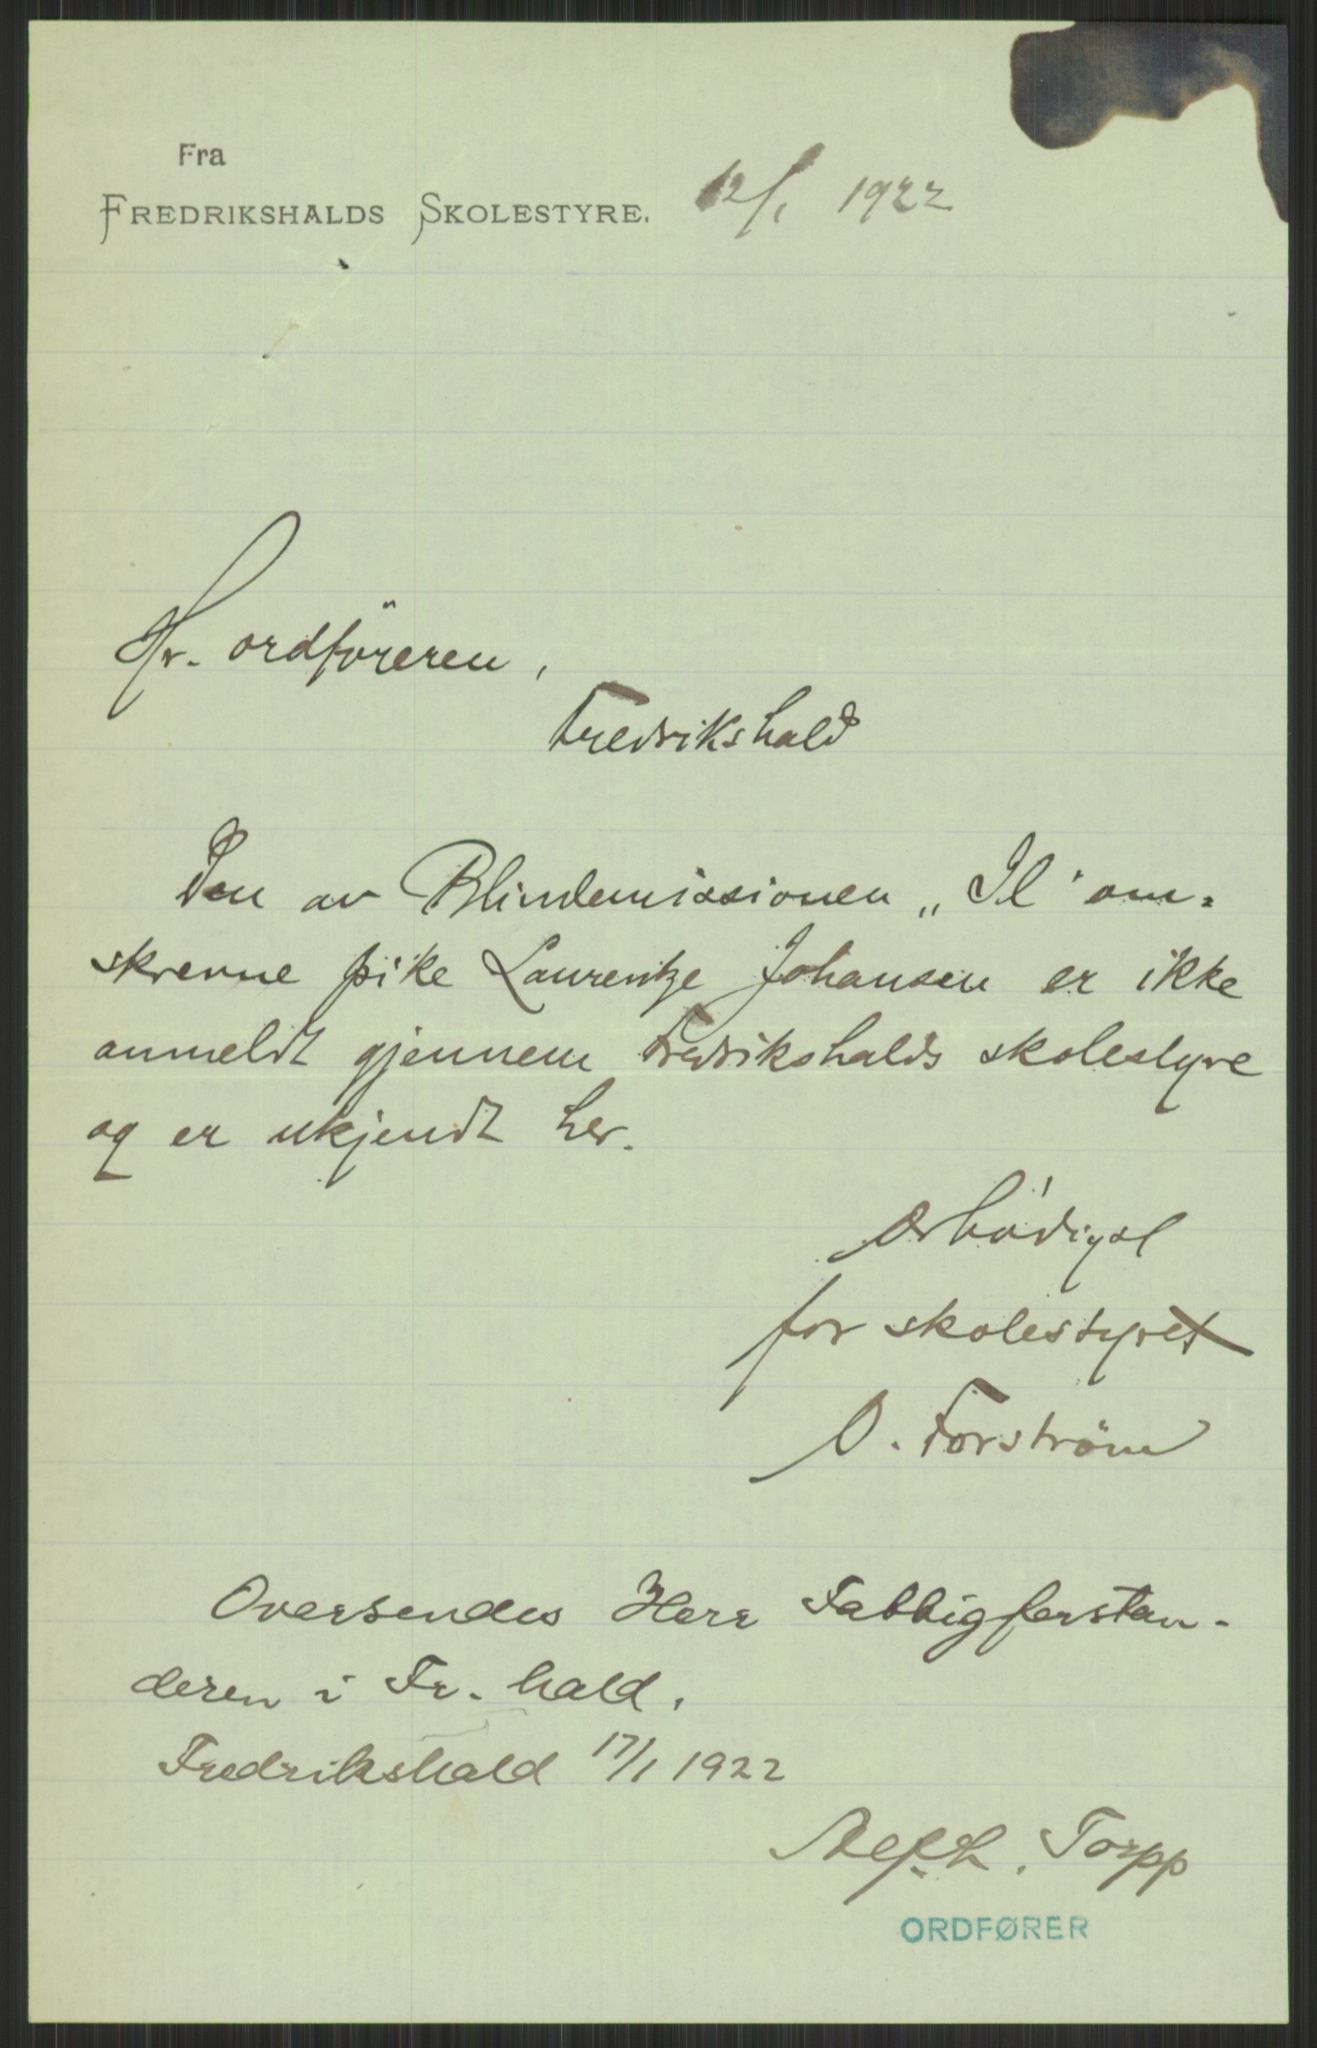 Fra
FREDRIKSHALDS SKOLESTYRE. 12/1 1922
Hr. ordföreren,
Fredrikshald
Den av Blindemissionen „Il" om-
skrevne pike Laurentze Johansen er ikke
anmeldt gjennem Fredrikshalds skolestyre
og er ukjendt her.
Ærbödigst
for skolestyret
O. Forström
Oversendes Herr Fattigforstan-
deren i Fr.hald.
Fredrikshald 17/1 1922
Torpp
ORDFØRER